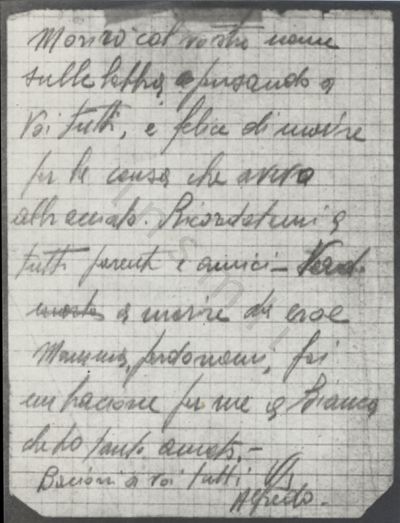 Morirò col vostro nome
sulle labbra e pensando a
Voi tutti, e felice di morire
per la causa che avevo
abbracciato. Ricordatemi a
tutti parenti e amici - Vado
a morire da eroe
Mamma, perdonami, fai
un bacione per me a Bianca
che ho tanto amato. -
Bacioni a voi tutti Vs
Alfredo.